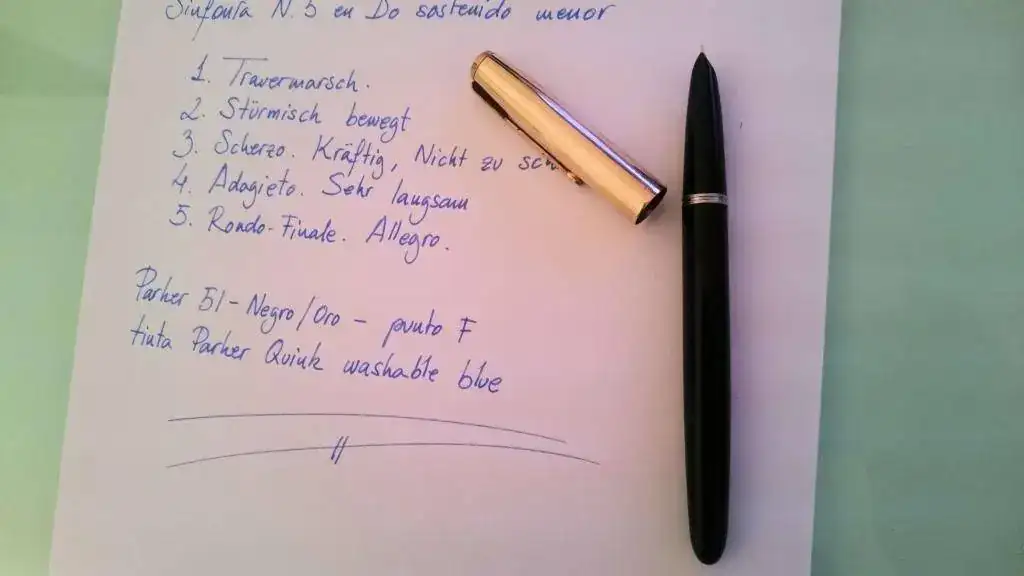 Sinfonía N. 5 en Do sostenido menor
1. Travermarsch.
2. Stürmisch bewegt
3. Scherzo. Kräftig, Nicht zu
4. Adagieto. Sehr langsam
5. Rondo-Finale. Allegro.
Parker 51 - Negro/Oro - punto F
tinta Parker Quink washable blue